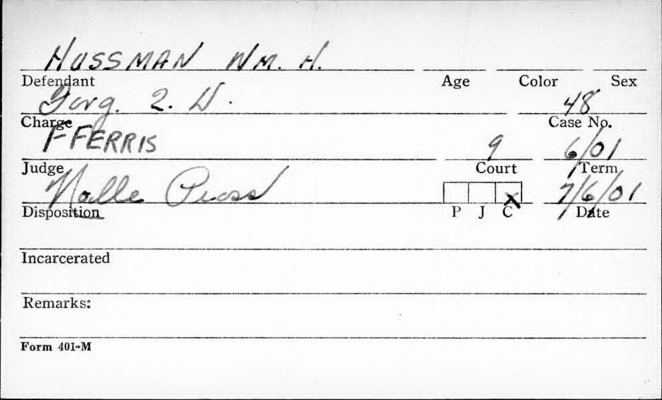 HUSSMAN WM. H.
Defendant Age Color Sex
Forg. 2. D. 48
Charge Case No.
FFERRIS 9 6/01
Judge Court Term
Nolle Pross X 7/6/01
Disposition P J C Date
Incarcerated
Remarks:
Form 401-M